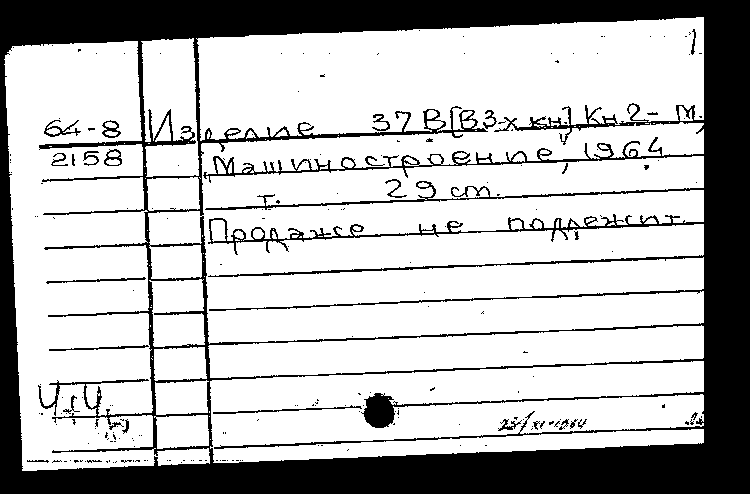 1.
64-8 Изделие 37В[В 3-х кн]. Кн. 2 - М.,
2158 „Машиностроение", 1964
т. 29 ст.
Продаже не подлежит.
23/XI-1964